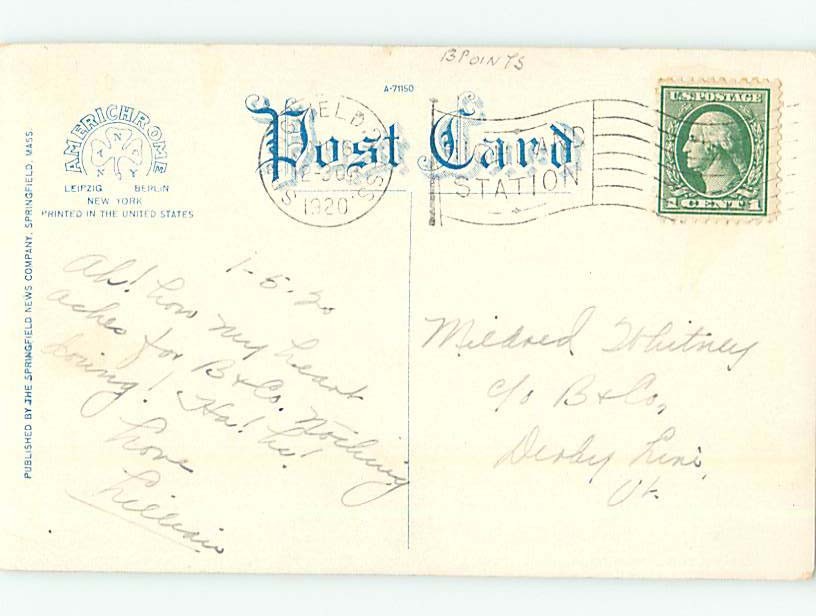 B POINTS
A-71150
Post Card
AMERICHROME
A N C N Y
LEIPZIG BERLIN
NEW YORK
PRINTED IN THE UNITED STATES
PUBLISHED BY THE SPRINGFIELD NEWS COMPANY, SPRINGFIELD, MASS.
1920
STATION
U.S. POSTAGE
1 CENT 1
1-5-20
Ah! how my heart
aches for B & Co. Nothing
doing! Ha! he!
Love
Lillian
Mildred Whitney
c/o B & Co,
Derby Line,
Vt.